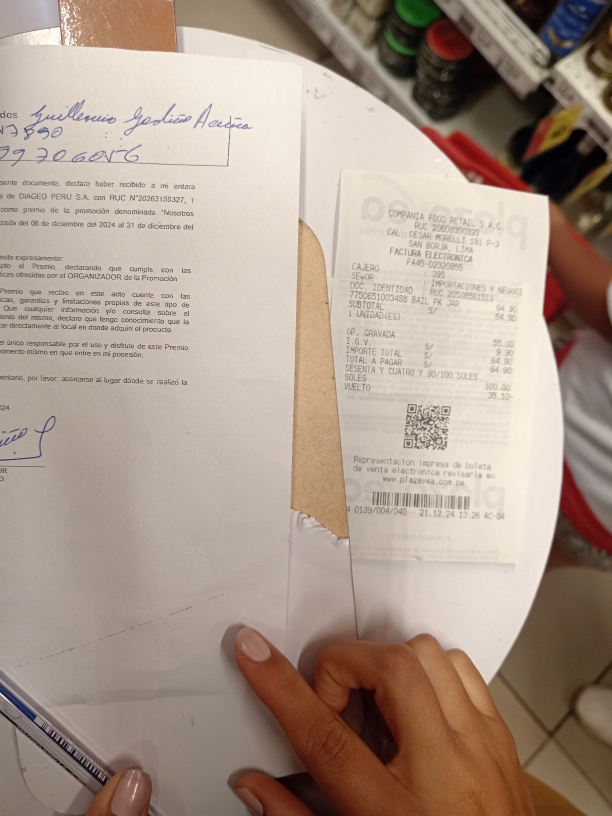 dos Guillermo
7890
99706056
sente documento, declara haber recibido a mi entera
de DIAGEO PERU S.A. con RUC N°20263158327, 1
como premio de la promoción denominada "Nosotros
zada del 06 de diciembre del 2024 al 31 de diciembre del
esto expresamente:
pto el Premio, declarando que cumple con las
ices ofrecidas por el ORGANIZADOR de la Promoción
Premio que recibo en este acto cuente con las
icas, garantías y limitaciones propias de este tipo de
Que cualquier información y/o consulta sobre el
iento del mismo, declaro que tengo conocimiento que la
zar directamente al local en donde adquirí el producto.
el único responsable por el uso y disfrute de este Premio
omento mismo en que entre en mi posesión.
mentario, por favor, acercarse al lugar dónde se realizó la
024
OR
O
plazavea
COMPANIA FOOD RETAIL S.A.C.
RUC 20608300393
CAL. CESAR MORELLI 181 P-3
SAN BORJA, LIMA
FACTURA ELECTRONICA
FA45-02320855
CAJERO : 095
SEÑOR : IMPORTACIONES Y NEGOCI
DOC. IDENTIDAD : RUC 20538561513
7750651003488 BAIL PK JAR 64.90
SUBTOTAL S/ 64.90
1 UNIDAD(ES)
OP. GRAVADA S/ 55.00
I.G.V. S/ 9.90
IMPORTE TOTAL S/ 64.90
TOTAL A PAGAR S/ 64.90
SESENTA Y CUATRO Y 90/100 SOLES
SOLES 100.00
VUELTO 35.10-
Representacion impresa de boleta
de venta electronica revisarla en
www.plazavea.com.pe
0139/004/040 21.12.24 13:26 AC-04